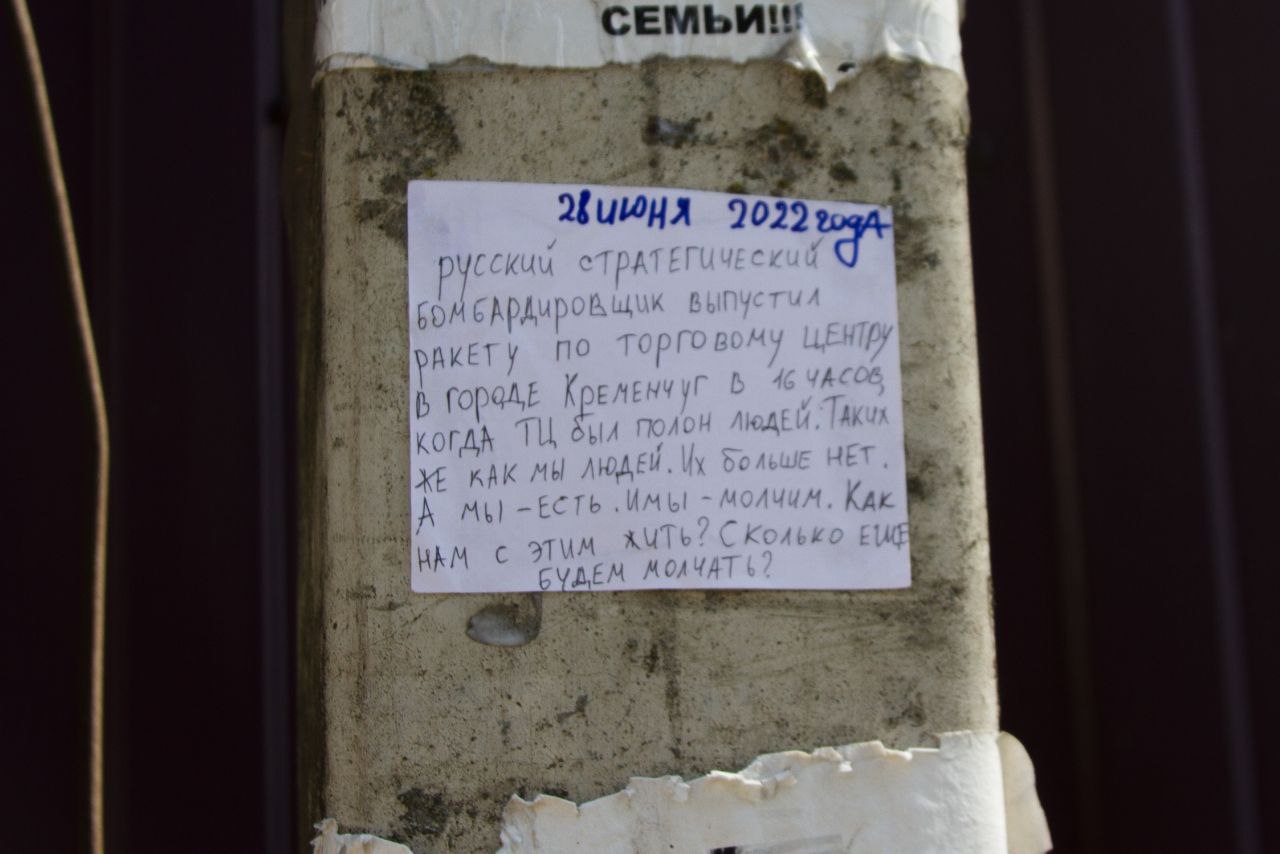 СЕМЬИ!!!
28 ИЮНЯ 2022 годА
русский стратегический
бомбардировщик выпустил
ракету по торговому центру
в городе Кременчуг в 16 часов,
когда ТЦ был полон людей. Таких
же как мы людей. Их больше нет.
А мы - есть. И мы - молчим. Как
нам с этим жить? Сколько еще
будем молчать?